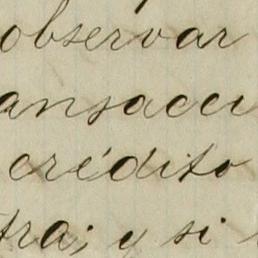 observar
ansacci
crédito
tra; y si